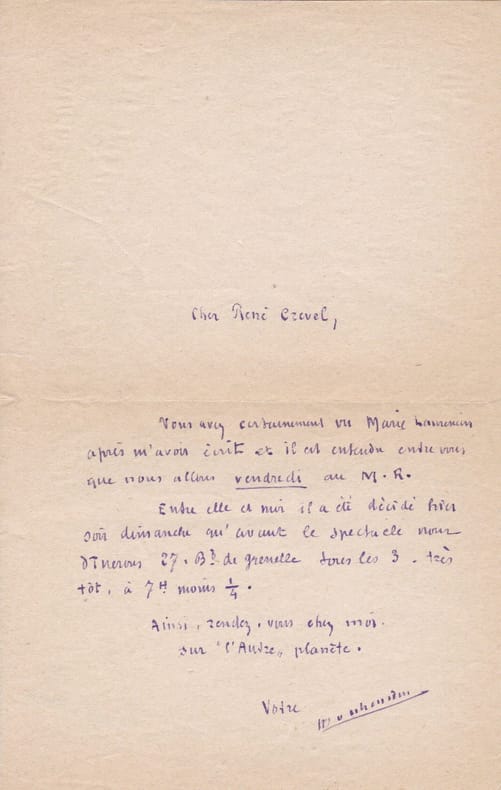 Cher René Crevel,
Vous avez certainement vu Marie Laurencin
après m'avoir écrit et il est entendu entre vous
que nous allons vendredi au M.R.
Entre elle et moi il a été décidé hier
soir dimanche qu'avant le spectacle nous
dînerons 27. Bd de grenelle tous les 3. très
tôt, à 7H moins 1/4.
Ainsi, rendez-vous chez moi.
sur "l'Autre" planète.
Votre